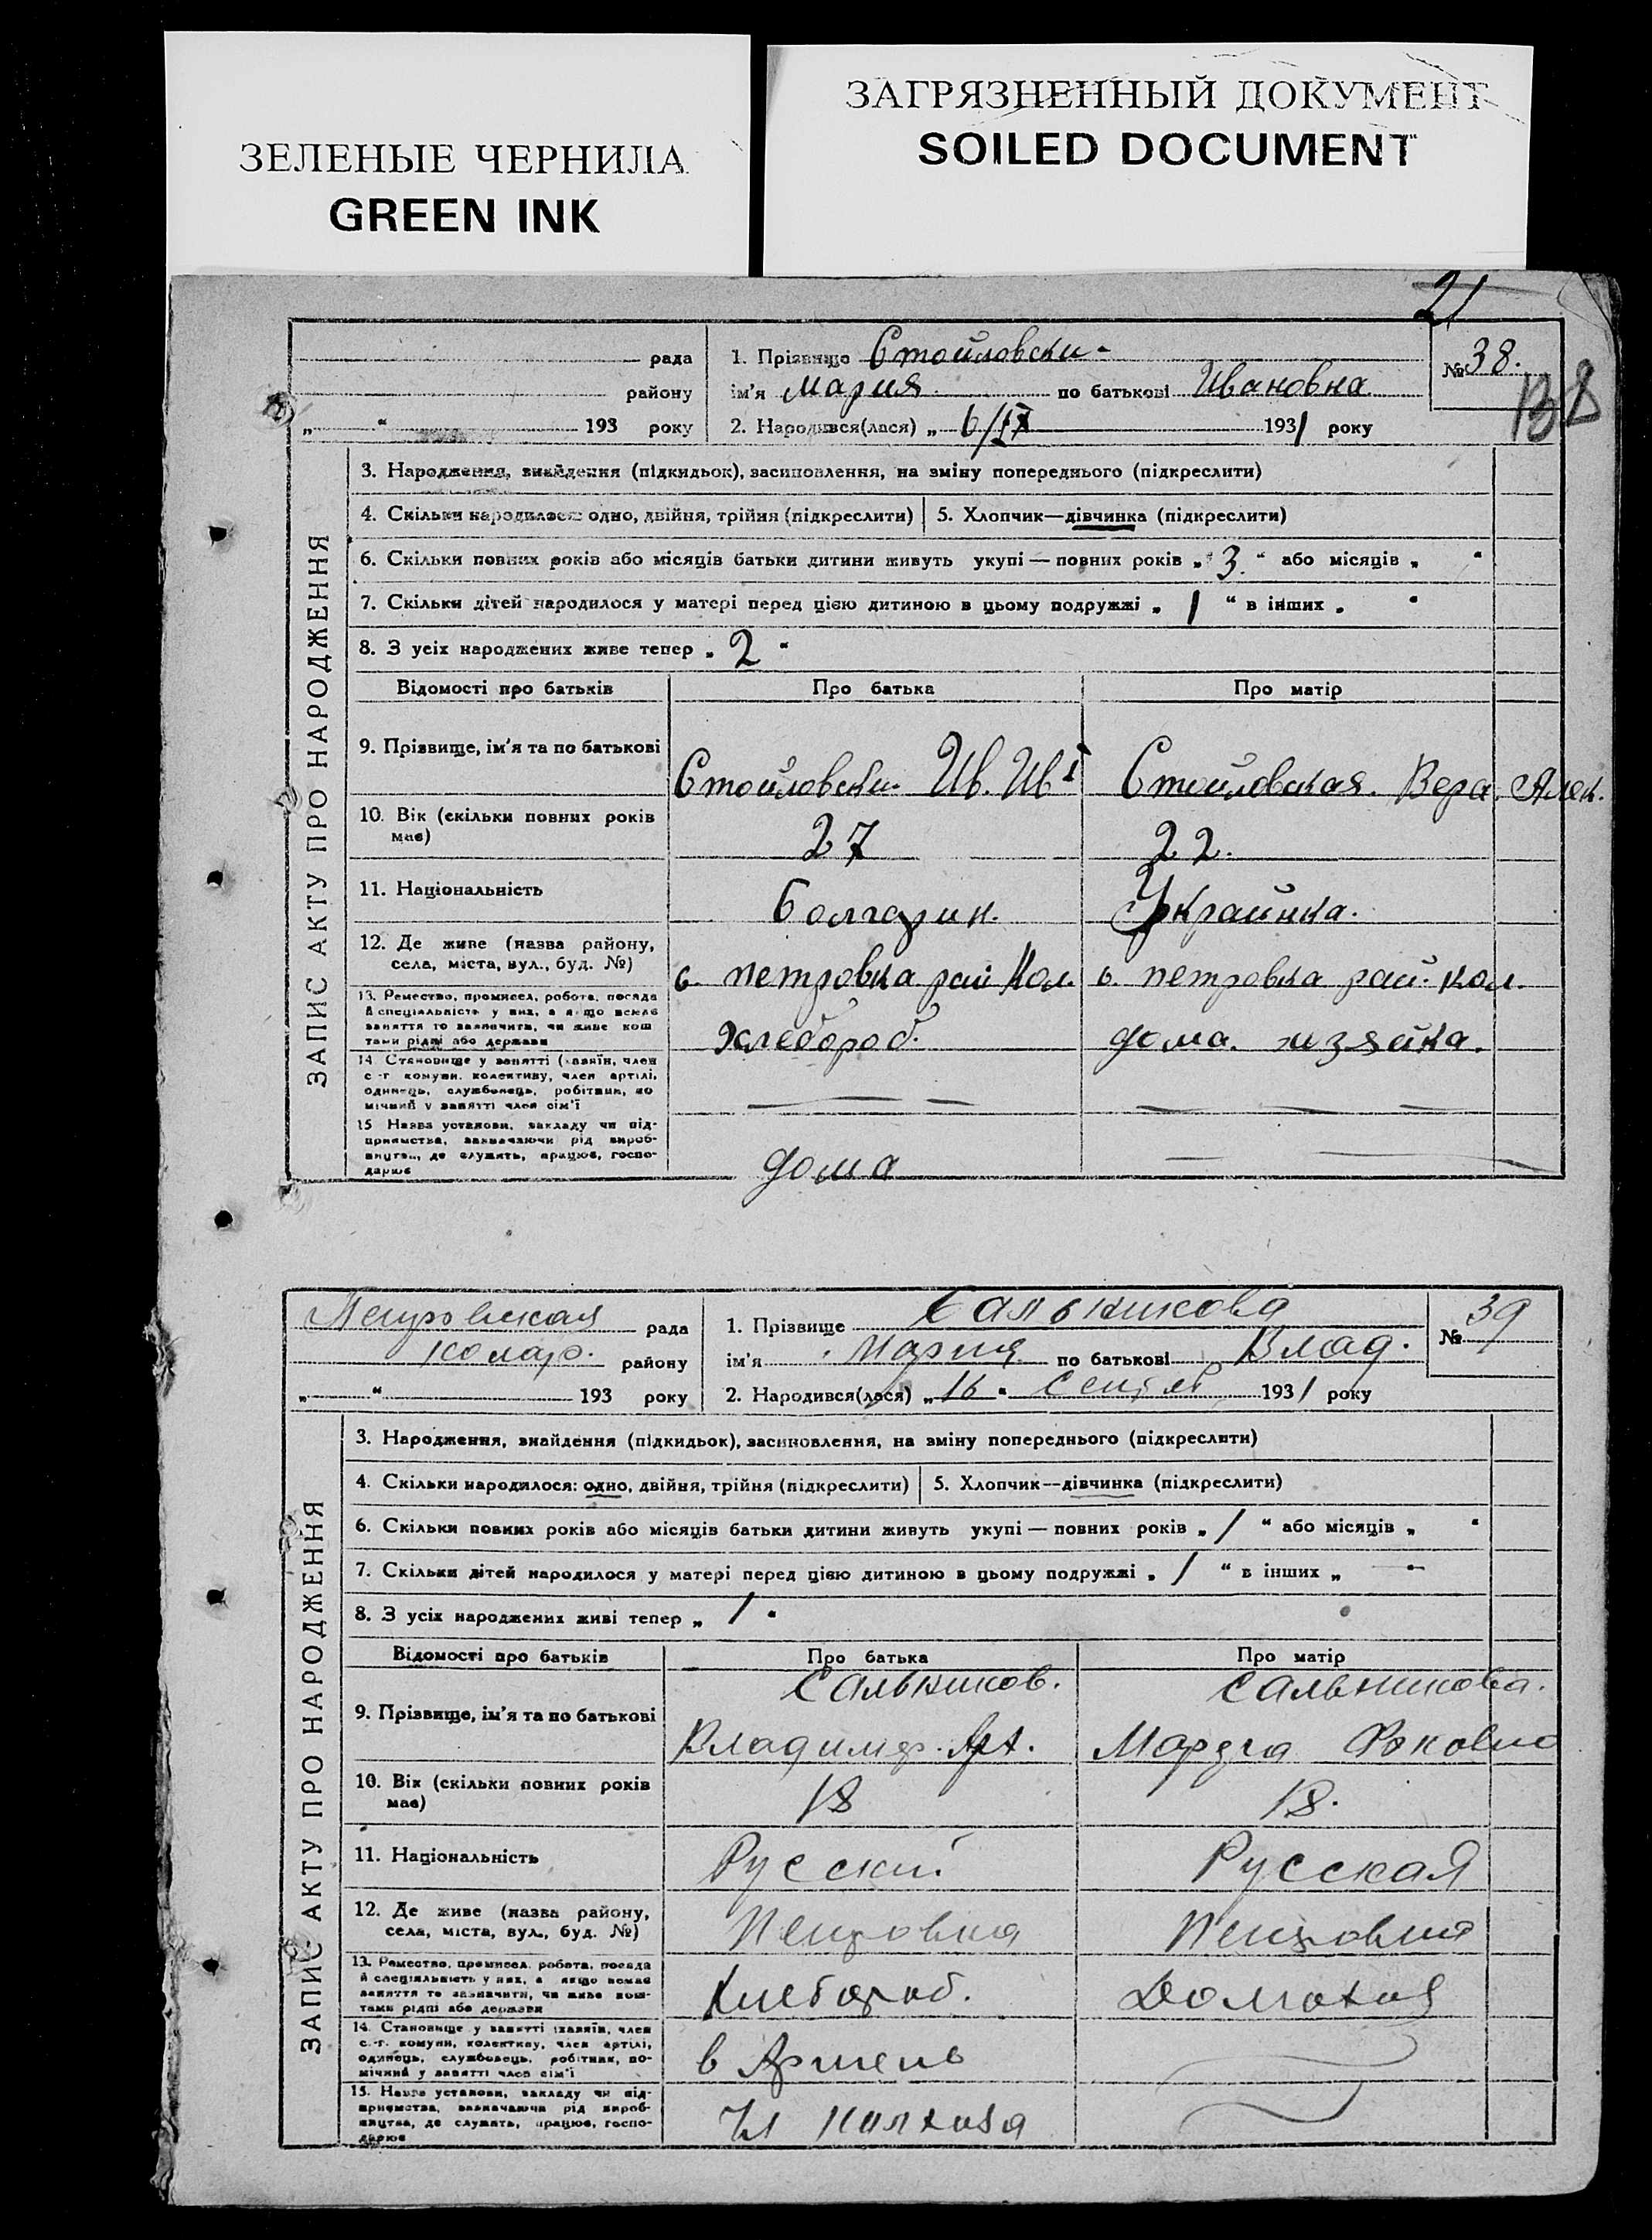 ЗЕЛЕНЫЕ ЧЕРНИЛА
GREEN INK
ЗАГРЯЗНЕННЫЙ ДОКУМЕНТ
SOILED DOCUMENT
21
ЗАПИС АКТУ ПРО НАРОДЖЕННЯ
рада
району
„ “ 193 року
1. Прізвище Стоиловски-
ім'я Мария по батькові Ивановна
2. Народився(лася) „ 6/IX 1931 року
№ 38.
3. Народження, знайдення (підкидьок), засиновлення, на зміну попереднього (підкреслити)
4. Скільки народилося: одно, двійня, трійня (підкреслити)
5. Хлопчик—дівчинка (підкреслити)
6. Скільки повних років або місяців батьки дитини живуть укупі — повних років „ 3. “ або місяців „ “
7. Скільки дітей народилося у матері перед цією дитиною в цьому подружжі „ 1 “ в інших „ “
8. З усіх народжених живе тепер „ 2 “
Відомості про батьків Про батька Про матір
9. Прізвище, ім'я та по батькові
Стоиловски. Ив. Ив Стоиловская. Вера. Алек.
10. Вік (скільки повних років має)
27 22.
11. Національність
болгарин. Украинка.
12. Де живе (назва району, села, міста, вул., буд. №)
с. петровка рай Кол. с. петровка рай. Кол.
13. Ремество, промисел, робота, посада й спеціальність у них, а якщо немає заняття то зазначити, чи живе коштами рідні або держави
Хлебороб. дома. хозяйка.
14. Становище у занятті (хазяїн, член с.-г. комуни, колективу, член артілі, одинець, службовець, робітник, помічний у занятті член сім'ї
15. Назва установи, закладу чи підприємства, зазначаючи рід виробництва, де служить, працює, господарює
дома
ЗАПИС АКТУ ПРО НАРОДЖЕННЯ
Петровская рада
Коляр. району
„ “ 193 року
1. Прізвище Сальникова
ім'я Мария по батькові Влад.
2. Народився(лася) „ 16 “ Сентяб 1931 року
№ 39
3. Народження, знайдення (підкидьок), засиновлення, на зміну попереднього (підкреслити)
4. Скільки народилося: одно, двійня, трійня (підкреслити)
5. Хлопчик--дівчинка (підкреслити)
6. Скільки повних років або місяців батьки дитини живуть укупі — повних років „ 1 “ або місяців „ “
7. Скільки дітей народилося у матері перед цією дитиною в цьому подружжі „ 1 “ в інших „ — “
8. З усіх народжених живі тепер „ 1 “
Відомості про батьків Про батька Про матір
Сальников. Сальникова.
9. Прізвище, ім'я та по батькові
Владимир. Марфа Фоковна
10. Вік (скільки повних років має)
18 18.
11. Національність
Русский Русская
12. Де живе (назва району, села, міста, вул., буд. №)
Петровка Петровка
13. Ремество, промисел, робота, посада й спеціальність у них, а якщо немає заняття то зазначити, чи живе коштами рідні або держави
Хлебороб. Домохоз
14. Становище у занятті (хазяїн, член с.-г. комуни, колективу, член артілі, одинець, службовець, робітник, помічний у занятті член сім'ї
в Артель
15. Назва установи, закладу чи підприємства, зазначаючи рід виробництва, де служить, працює, господарює
Чл колхоза